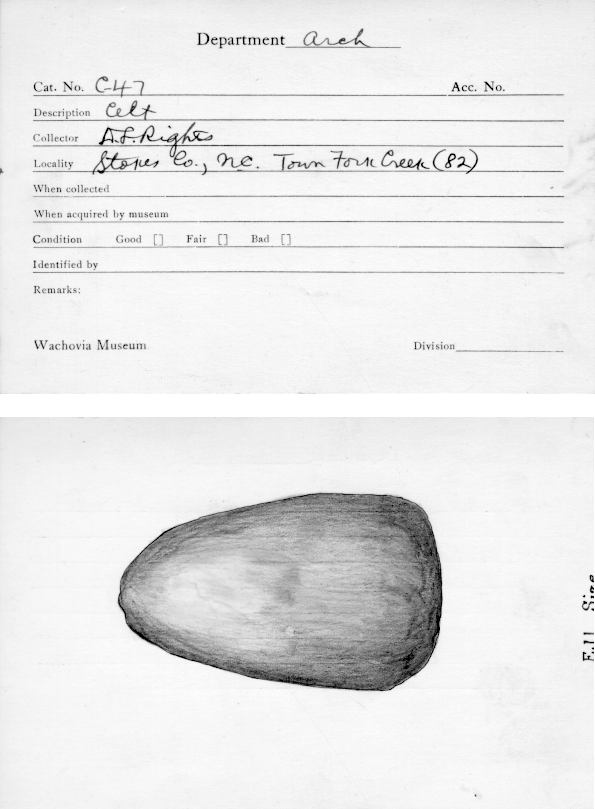 Department Arch
Cat. No. C-47 Acc. No.
Description Celt
Collector D.L. Rights
Locality Stokes Co., N.C. Town Fork Creek (82)
When collected
When acquired by museum
Condition Good [] Fair [] Bad []
Identified by
Remarks:
Wachovia Museum Division
Full Size